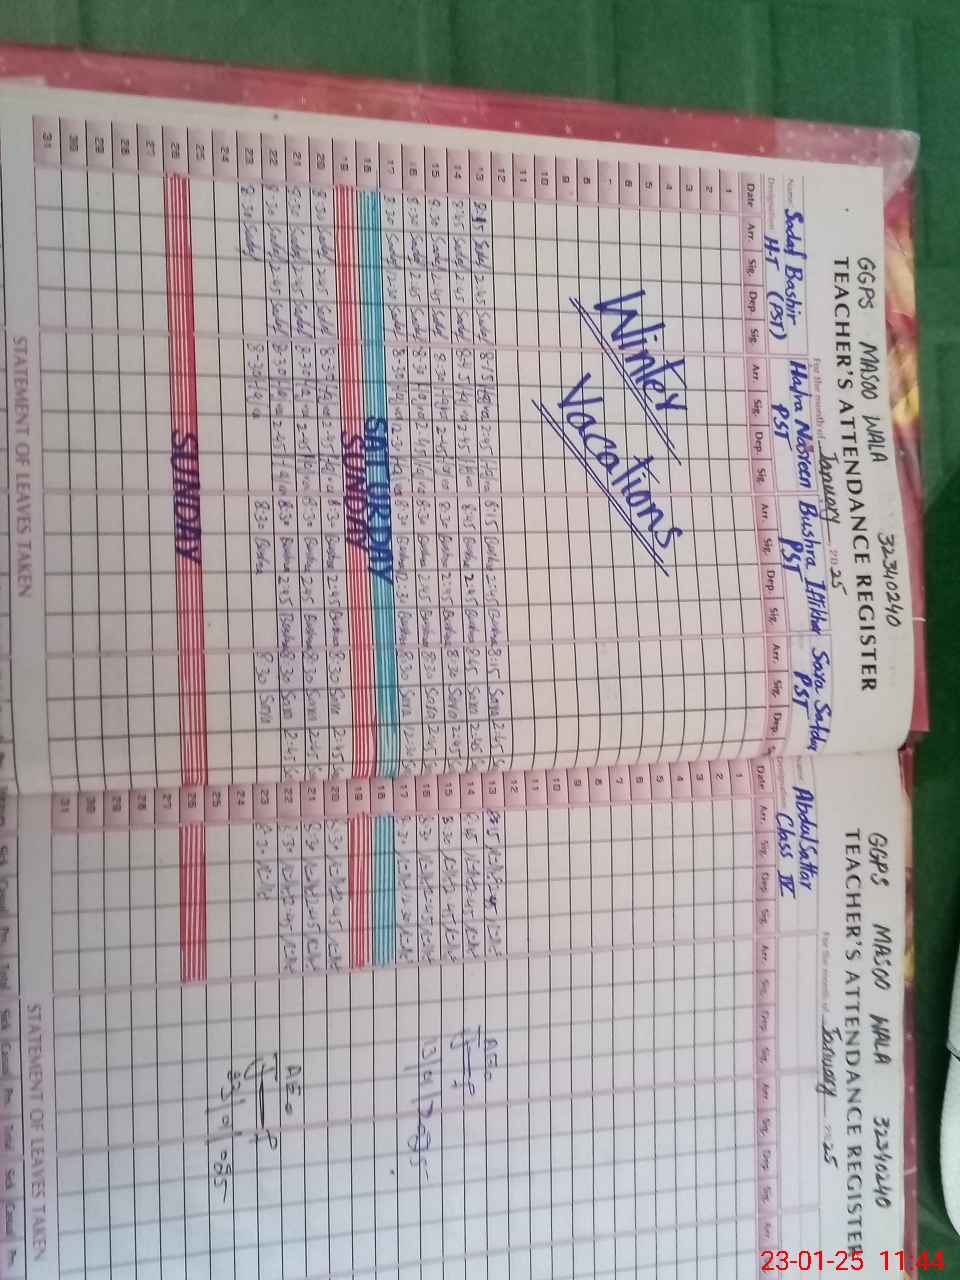 GGPS MASOO WALA 32340240
TEACHER'S ATTENDANCE REGISTER
For the month of January 2025
Name Sadaf Bashir Hajra Nasreen Bushra Iftikhar Sara Safdar
Designation H-T (PST) PST PST PST
Date Arr. Sig. Dep. Sig. Arr. Sig. Dep. Sig. Arr. Sig. Dep. Sig. Arr. Sig. Dep.
1
2
3
4
5
6
7
8
9
10
11
12
Winter Vacations
13 8:15 Sadaf 2:45 Sadaf 8:15 Hajra 2:45 Hajra 8:15 Bushra 2:45 Bushra 8:15 Sara 2:45
14 8:45 Sadaf 2:45 Sadaf 8:45 Hajra 2:45 Hajra 8:45 Bushra 2:45 Bushra 8:45 Sara 2:45
15 8:30 Sadaf 2:45 Sadaf 8:30 Hajra 2:45 Hajra 8:30 Bushra 2:45 Bushra 8:30 Sara 2:45
16 8:30 Sadaf 2:45 Sadaf 8:30 Hajra 2:45 Hajra 8:30 Bushra 2:45 Bushra 8:30 Sara 2:45
17 8:30 Sadaf 12:30 Sadaf 8:30 Hajra 12:30 Hajra 8:30 Bushra 12:30 Bushra 8:30 Sara 12:30
18 SATURDAY
19 SUNDAY
20 8:30 Sadaf 2:45 Sadaf 8:30 Hajra 2:45 Hajra 8:30 Bushra 2:45 Bushra 8:30 Sara 2:45
21 8:30 Sadaf 2:45 Sadaf 8:30 Hajra 2:45 Hajra 8:30 Bushra 2:45 Bushra 8:30 Sara 2:45
22 8:30 Sadaf 2:45 Sadaf 8:30 Hajra 2:45 Hajra 8:30 Bushra 2:45 Bushra 8:30 Sara 2:45
23 8:30 Sadaf 8:30 Hajra 8:30 Bushra 8:30 Sara
24
25
26 SUNDAY
27
28
29
30
31
STATEMENT OF LEAVES TAKEN
GGPS MASOO WALA 32340240
TEACHER'S ATTENDANCE REGISTER
For the month of January 2025
Name Abdul Sattar
Designation Class IV
Date Arr. Sig. Dep. Sig. Arr. Sig. Dep. Sig. Arr. Sig. Dep. Sig. Arr.
1
2
3
4
5
6
7
8
9
10
11
12
13 8:15 2:45
14 8:45 2:45
15 8:30 2:45
16 8:30 2:45
17 8:30 12:30
18
19
20 8:30 2:45
21 8:30 2:45
22 8:30 2:45
23 8:30
24
25
26
27
28
29
30
31
AEo
AEo
23/01/025
STATEMENT OF LEAVES TAKEN
23-01-25 11:44